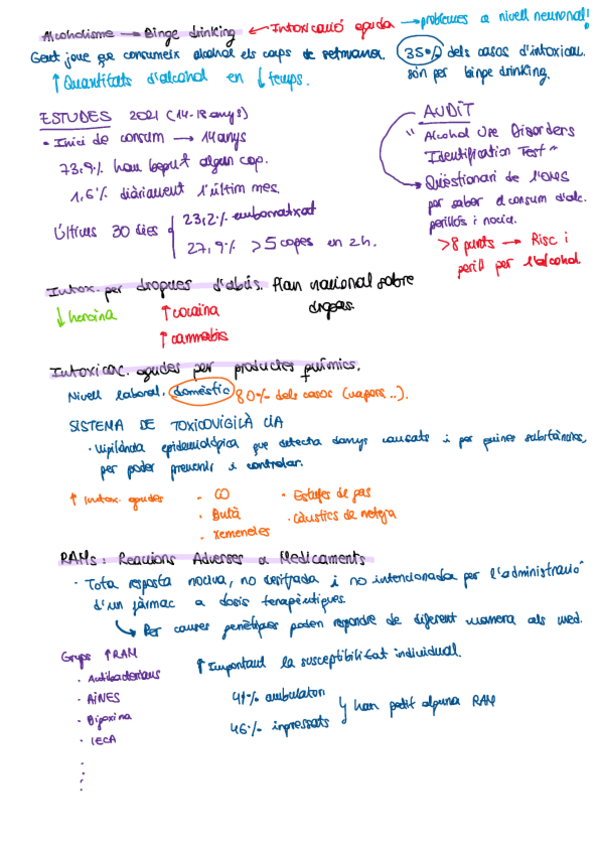 Alcoholisme → Binge drinking ← Intoxicació aguda → problemes a nivell neuronal!
Gent jove que consumeix alcohol els caps de setmana. 35% dels casos d'intoxicau.
↑ Quantitats d'alcohol en ↓ temps. són per binge drinking.
ESTUDES 2021 (14-18 anys)
• Inici de consum → 14 anys
73,9% han begut algun cop.
1,6% diàriament l'últim mes.
Últims 30 dies
23,2% emborratxat
27,9% >5 copes en 2h.
AUDIT
"Alcohol Use Disorders
Identification Test"
→ Qüestionari de l'OMS
per saber el consum d'alc.
perillós i nociu.
>8 punts → Risc i
perill per l'alcohol.
Intox. per drogues d'abús. Plan nacional sobre
drogas.
↓ heroina ↑ cocaina
↑ cannabis
Intoxicac. agudes per productes químics.
Nivell laboral, domèstic 80% dels casos (vapors..).
SISTEMA DE TOXICOVIGILÀNCIA
• Vigilància epidemiològica que detecta danys causats i per quines substàncies,
per poder prevenir i controlar.
↑ Intox. agudes
- CO
- Butà
- Xemeneies
• Estufes de gas
• Càustics de neteja
RAMs: Reaccions Adverses a Medicaments
• Tota resposta nociva, no desitjada i no intencionada per l'administració
d'un fàrmac a dosis terapèutiques.
↳ Per causes genètiques poden respondre de diferent manera als med.
Grups ↑RAM
• Antibacterians
• AINES
• Digoxina
• IECA
↑ Important la susceptibilitat individual.
41% ambulatori
46% ingressats
han patit alguna RAM